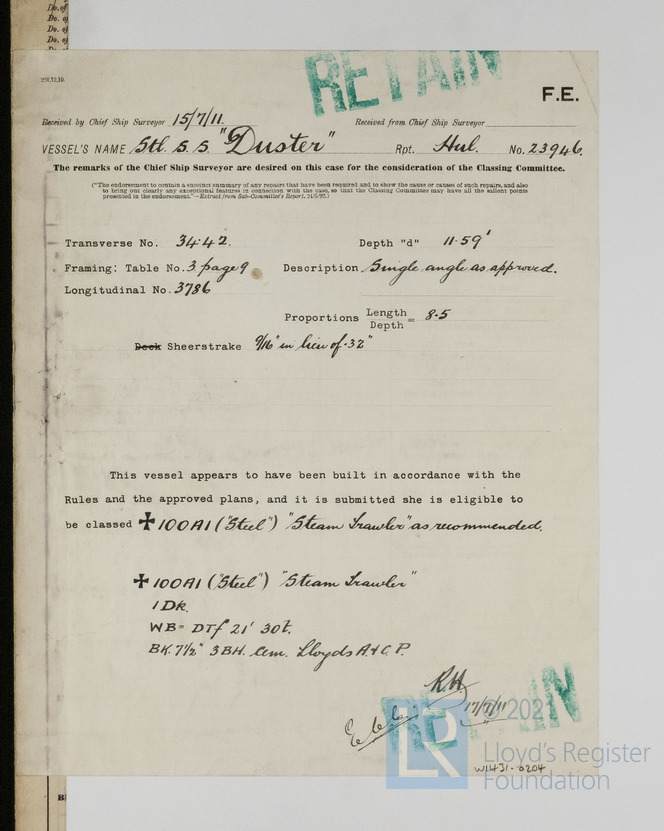 Do. of
Do. of
Do. of
Do. of
RETAIN
250,12,10.
F.E.
Received by Chief Ship Surveyor 15/7/11. Received from Chief Ship Surveyor
VESSEL'S NAME Stl. S.S "Duster" Rpt. Hul. No. 23946.
The remarks of the Chief Ship Surveyor are desired on this case for the consideration of the Classing Committee.
("The endorsement to contain a succinct summary of any repairs that have been required and to show the cause or causes of such repairs, and also
to bring out clearly any exceptional features in connection with the case, so that the Classing Committee may have all the salient points
presented in the endorsement."—Extract from Sub-Committee's Report, 24/5/92.)
Transverse No. 34.42. Depth "d" 11.59'
Framing: Table No. 3 page 9 Description Single angle as approved.
Longitudinal No. 3786
Proportions Length/Depth = 8.5
Deck Sheerstrake 9/16" in lieu of .32"
This vessel appears to have been built in accordance with the
Rules and the approved plans, and it is submitted she is eligible to
be classed ✠100A1 ("Steel") "Steam Trawler" as recommended.
✠100A1 ("Steel") "Steam Trawler"
1 Dk.
WB= DTf 21' 30t.
BK. 7½" 3BH. Cem. Lloyds A & C. P.
R.H.
17/7/11
RETAIN
© 2021
LR
Lloyd's Register
Foundation
W1431-0204
B